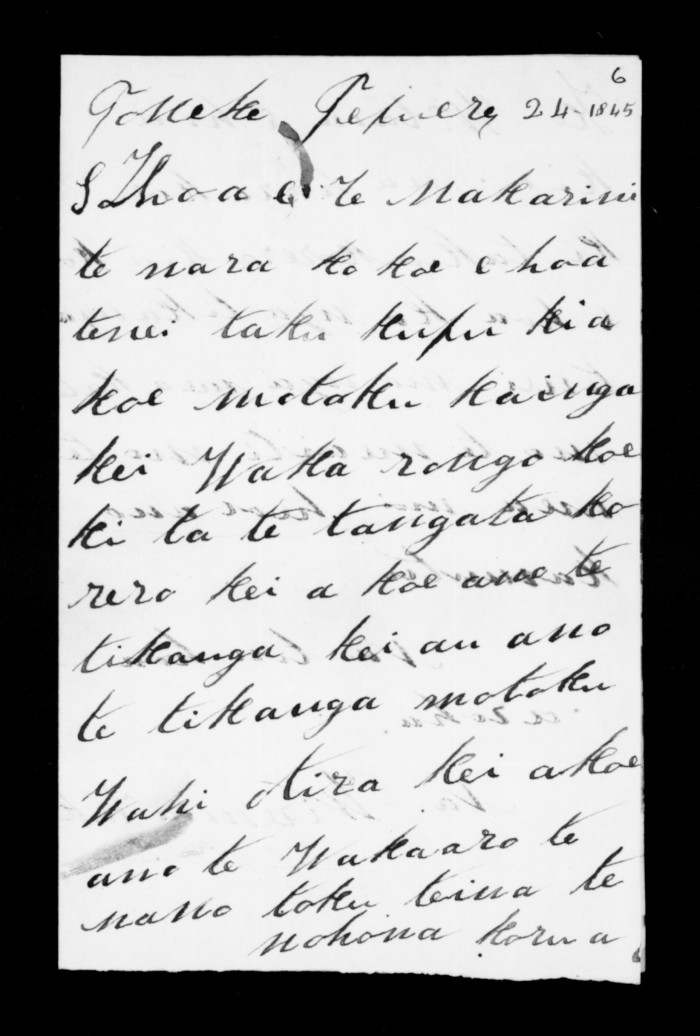 6
Toneke Pepuere 24 - 1845
E Hoa e Te Makarini
te nara ko koe e hoa
tenei taku kupu kia
koe motoku kainga
kei Waka rongo koe
ki ta te tangata ko
rero kei a koe ano te
tikanga kei au ano
te tikanga motoku
Wahi otira kei akoe
ano te Wakaaro te
nano toku teina te
nohona korua